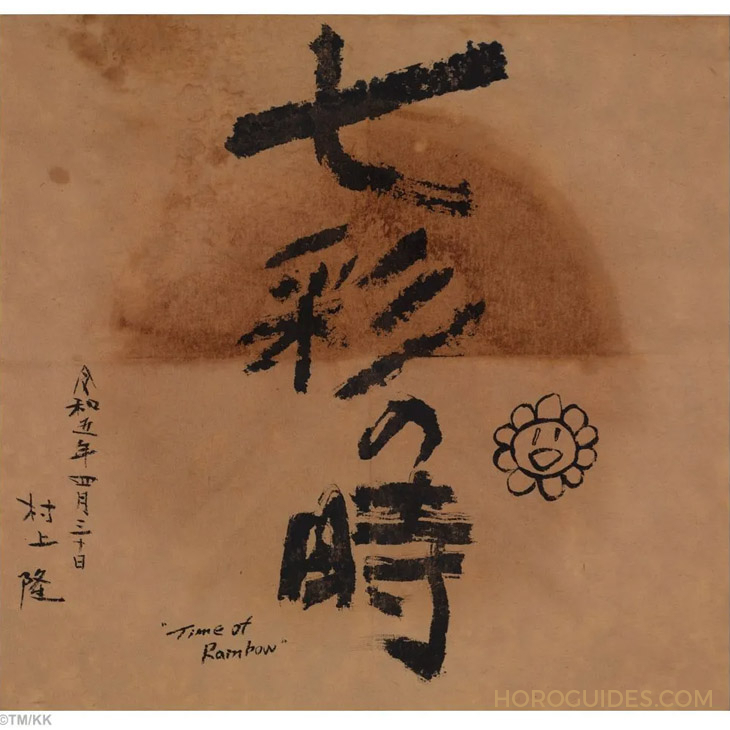 七彩の時
令和五年四月三十日
村上隆
"Time of
Rainbow"
HOROGUIDES.COM
©TM/KK